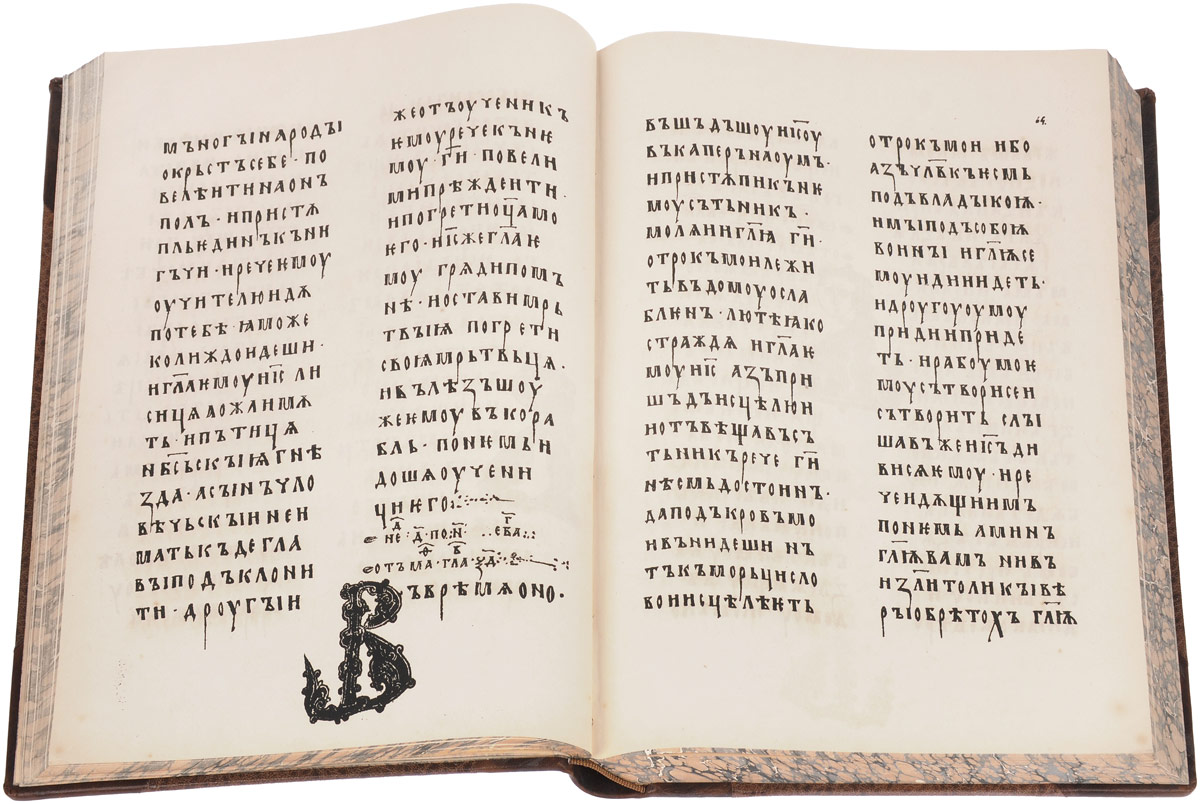 мъногꙑ народꙑ
окрьстъ себе · по
велѣ ити на онъ
полъ · и пристѫ
пль ѥдинъ къни
гъчи · и рече ѥмоу
оучителю идѫ
по тебѣ ꙗможе
колиждо идеши ·
и гл҃а ѥмоу ис҃ ли
сицѧ ложа имѫ
ть · и пътицѧ
нб҃сьскꙑꙗ гнѣ
зда · а сꙑнъ чло
вѣчьскꙑи не и
мать къде гла
вꙑ подъклони
ти · дроугꙑи
же отъ оученикъ
ѥмоу рече къ нѥ
моу · г҃и · повели
ми прѣжде ити ·
и погрети оц҃а мо
ѥго · ис҃ же гл҃а ѥ
моу грѧди по мъ
нѣ · и остави мрь
твꙑꙗ погрети
своꙗ мрьтвьцѧ ·
и вълѣзъшоу
же ѥмоу въ кора
бль · по нѥмь и
доша оучени
ци ѥго
не · д҃ · по · н҃ · ева г҃
отъ ма · гла · зд҃
Въ врѣмѧ оно ·
въшьдъшоу ис҃оу
въ каперънаоумъ ·
и пристѫпи къ нѥ
моу сътьникъ ·
молѧ и гл҃ѧ г҃и ·
отрокъ мои лежи
ть въ домоу осла
блѥнъ · лютѣ ꙗко
стражда и гл҃а ѥ
моу ис҃ азъ при
шьдъ исцѣлю и
и отъвѣщавъ съ
тьникъ рече г҃и
нѣсмь достоинъ ·
да подъ кровъ мо
и вънидеши нъ
тъкъмо рьци сло
во и исцѣлѣѥть
отрокъ мои ибо
азъ чл҃вкъ ѥсмь
подъ владꙑкоѭ ·
имꙑ подъ собоѭ
воинꙑ и гл҃ѭ се
моу иди и идеть ·
и дроугоуоумоу
приди и приде
ть · и рабоу моѥ
моу сътвори се и
сътворить слꙑ
шавъ же ис҃ъ ди
висѧ ѥмоу · и ре
че идѫщиимъ
по нѥмь амин
гл҃ѭ вамъ ни въ
из҃ли толикꙑ вѣ
рꙑ обрѣтохъ гл҃ѭ